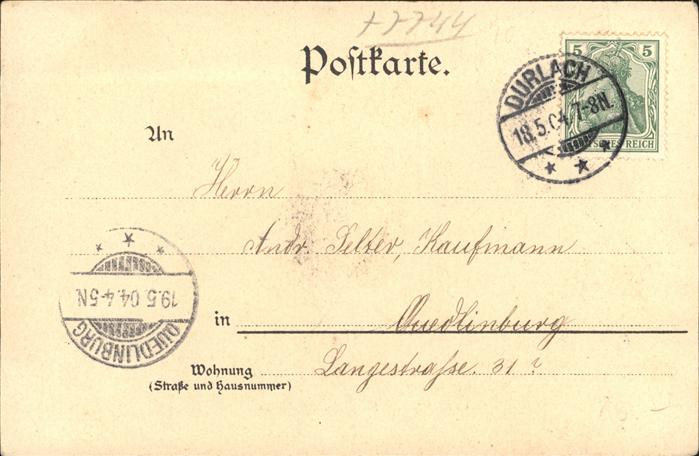 +2744
Postkarte.
5 5
DEUTSCHES REICH
DURLACH
18.5.04.7-8N.
An
Herrn
Andr. Selzer, Kaufmann
in Quedlinburg
Wohnung Langestrasse. 31?
(Straße und Hausnummer)
QUEDLINBURG
19.5.04.4-5N.